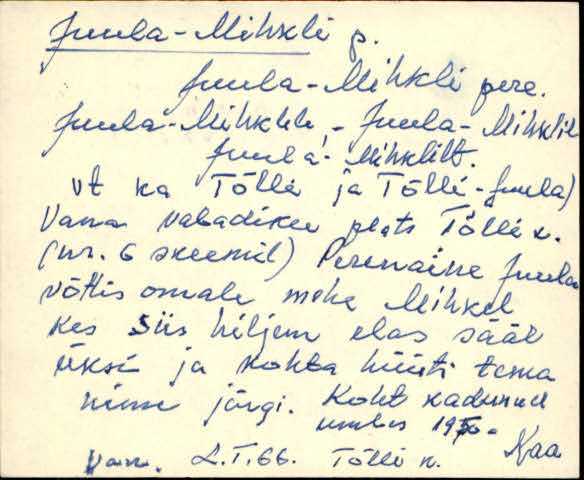 Juula-Mihkli p.
Juula-Mihkli pere.
Juula-Mihklile - Juula-Mihklil
Juula-Mihklilt.
vt ka Tõlli ja Tõlli-Juula)
Vana vabadiku plats Tõlli k.
(nr. 6 skeemil) Perenaine Juula
võttis omale mehe Mihkel
kes siis hiljem elas sääl
üksi ja kohta hüüti tema
nime järgi. Koht kadunud
umbes
Van. L.T. 66. Tõlli n. Kaa